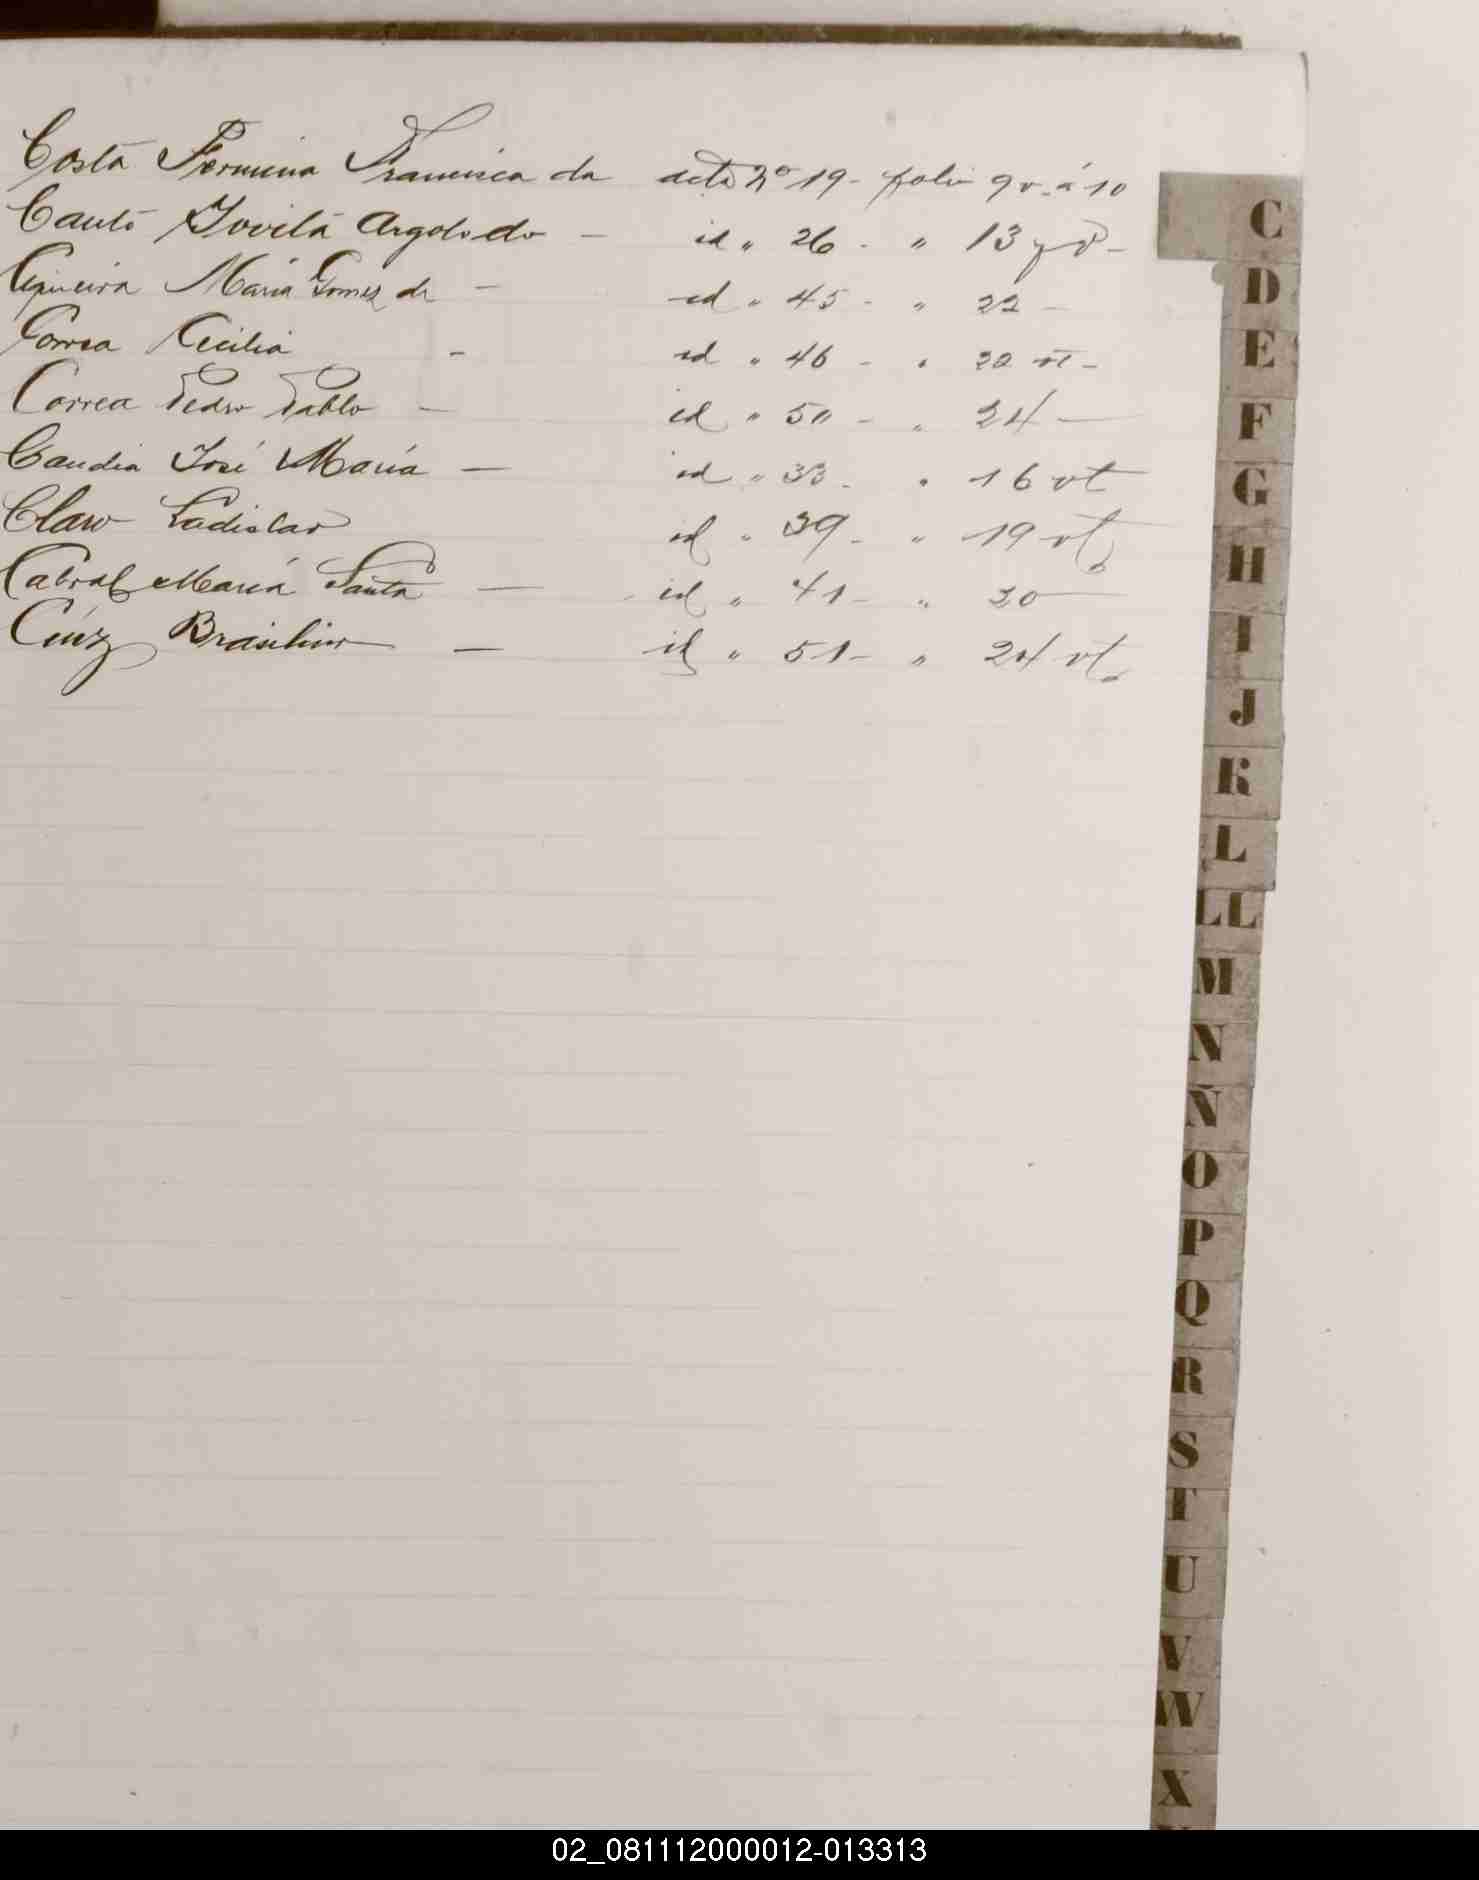 Costa Fermina Francisca da acta Nº 19 - folio 9 v. á 10
Canto Jovita Argolo do - id " 26 - " 13 y v -
Cequeira María Gomez de - id " 45 - " 22 -
Correa Cicilia - id " 46 - " 22 vt -
Correa Pedro Pablo - id " 50 - " 24 -
Candia José María - id " 33 - " 16 vt
Claro Ladislao id " 39 - " 19 vt
Cabral María Santa - id " 41 - " 20
Cruz Brasilino - id " 51 - " 24 vt
C
D
E
F
G
H
I
J
K
L
LL
M
N
Ñ
O
P
Q
R
S
T
U
V
W
X
02_081112000012-013313